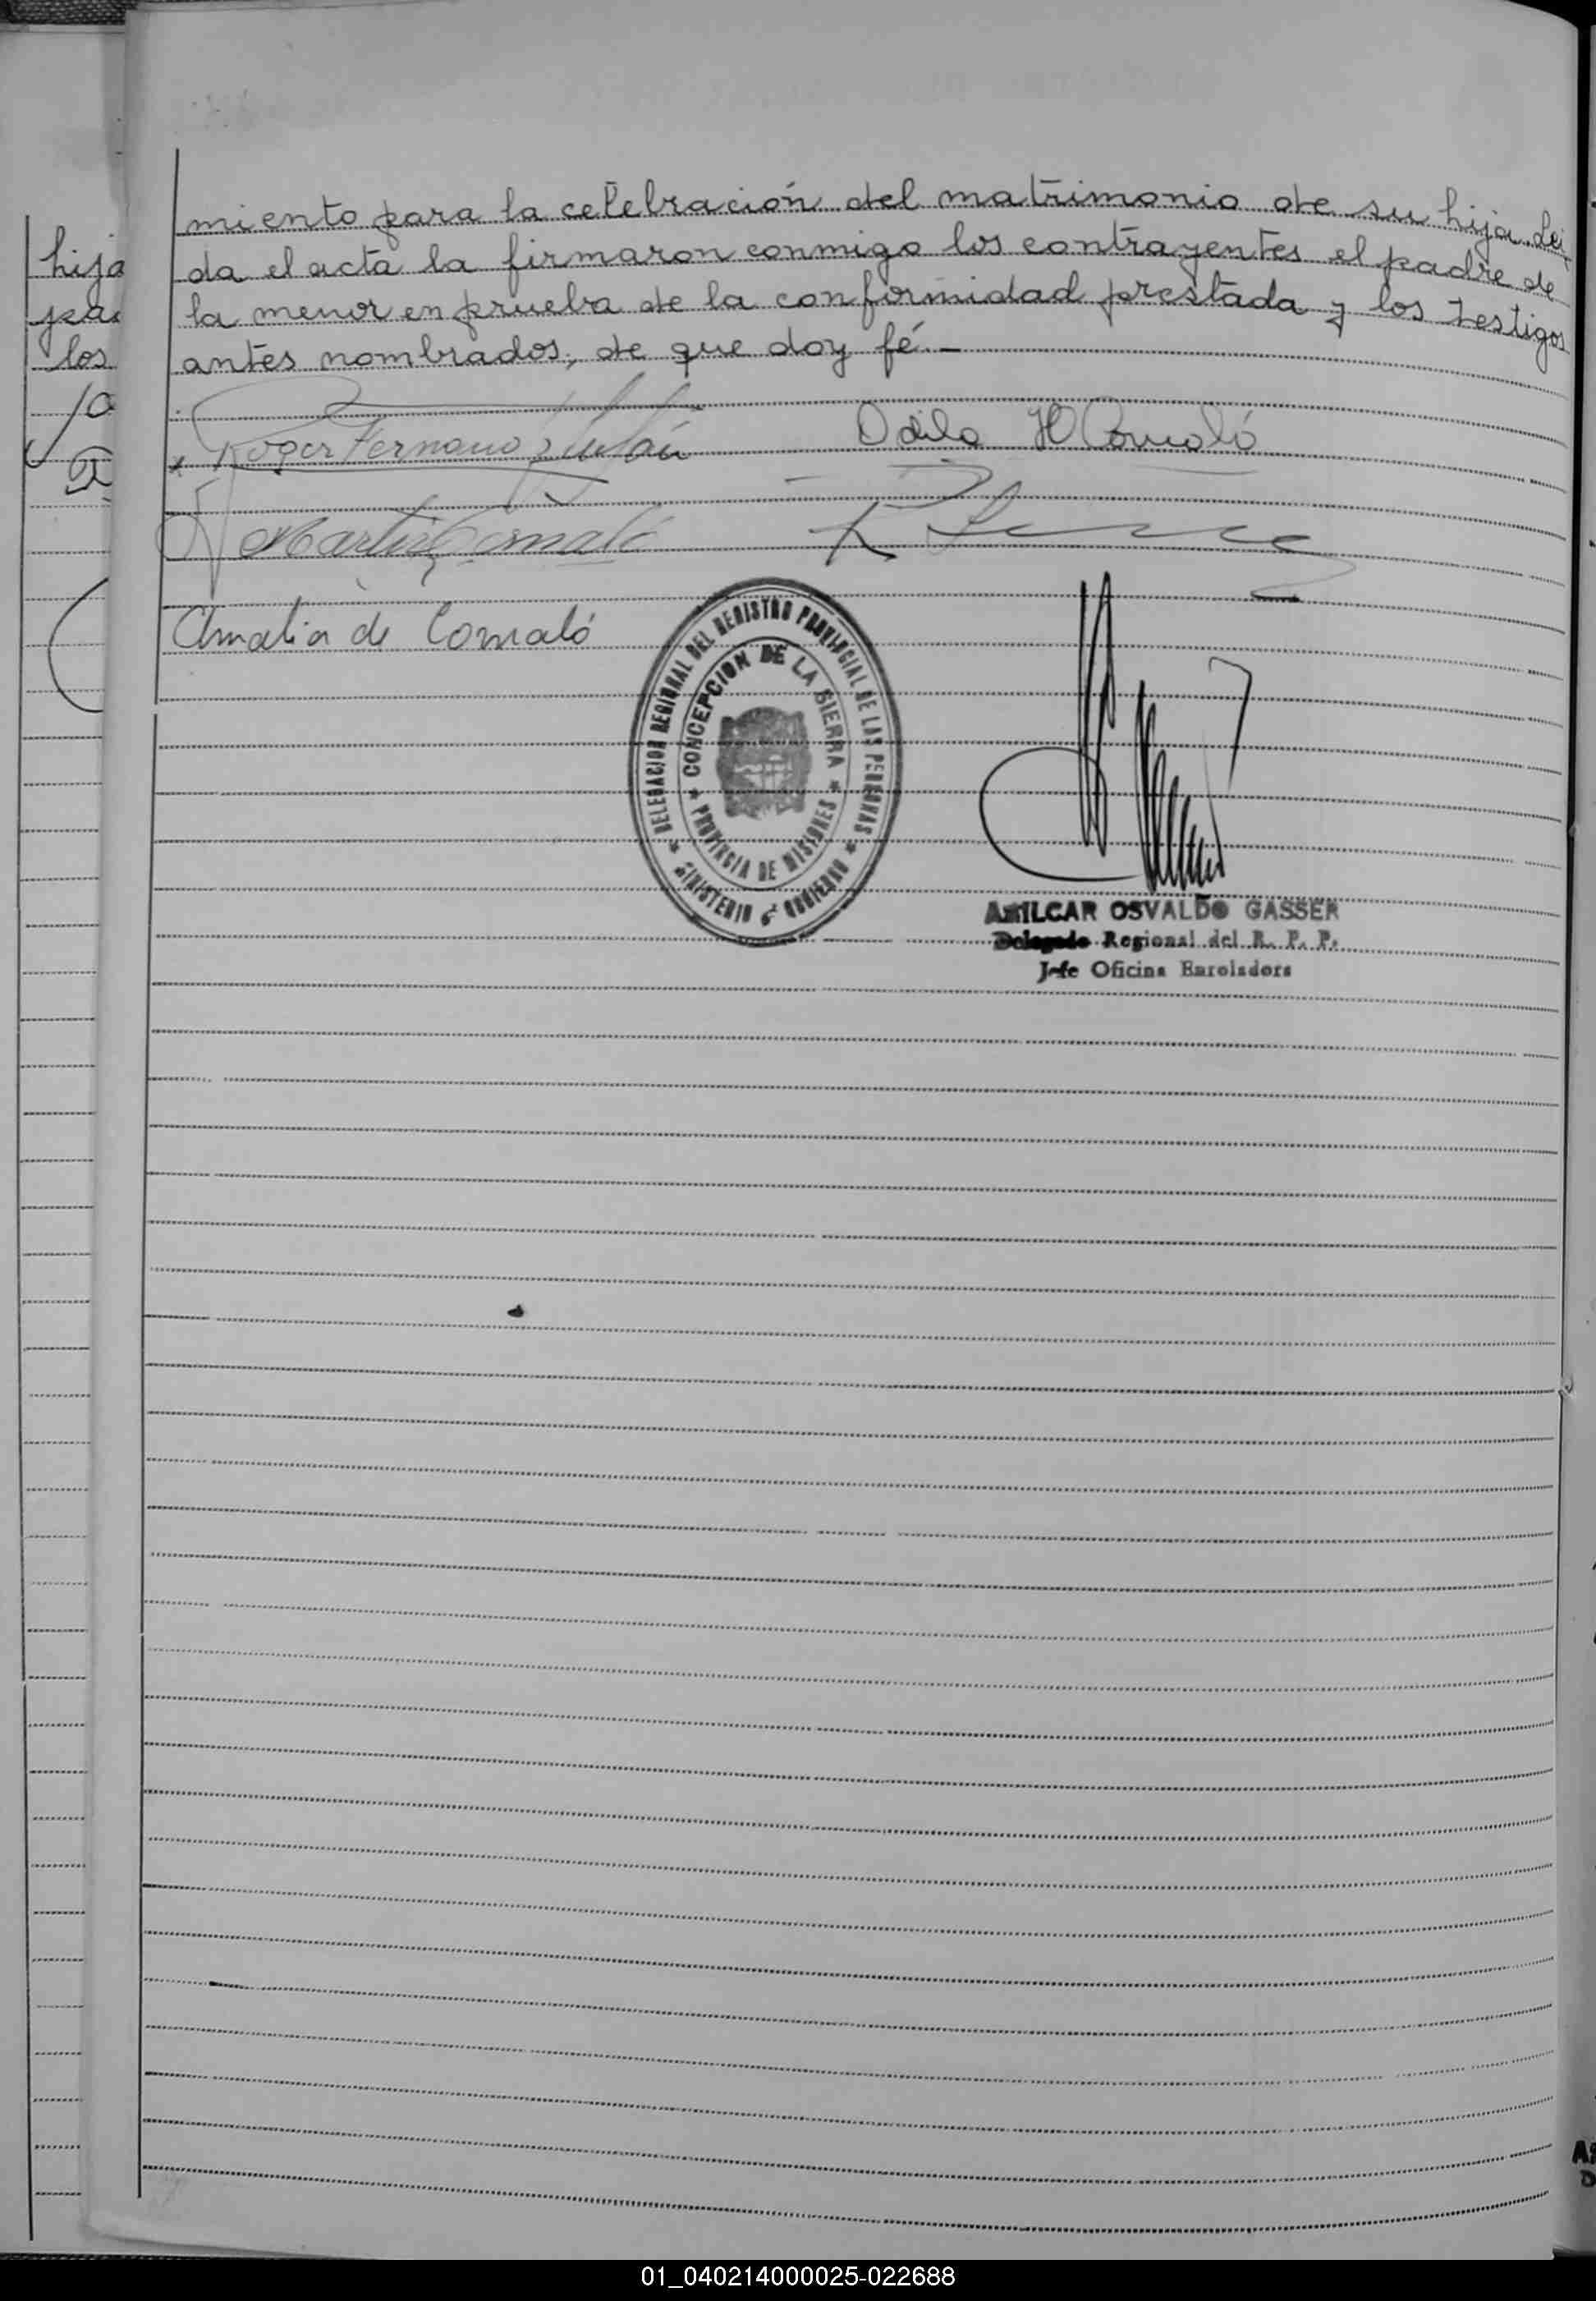 miento para la celebración del matrimonio de su hija. Leí
da el acta la firmaron conmigo los contrayentes el padre de
la menor en prueba de la conformidad prestada y los testigos
antes nombrados, de que doy fé.-
Roger Fernando
Odila H
Martin
Amalia de
DELEGACION REGIONAL DEL REGISTRO PROVINCIAL DE LAS PERSONAS
CONCEPCION DE LA SIERRA
PROVINCIA DE MISIONES
MINISTERIO GOBIERNO
AMILCAR OSVALDO GASSER
Delegado Regional del R. P. P.
Jefe Oficina Enroladora
hija
los
01_040214000025-022688